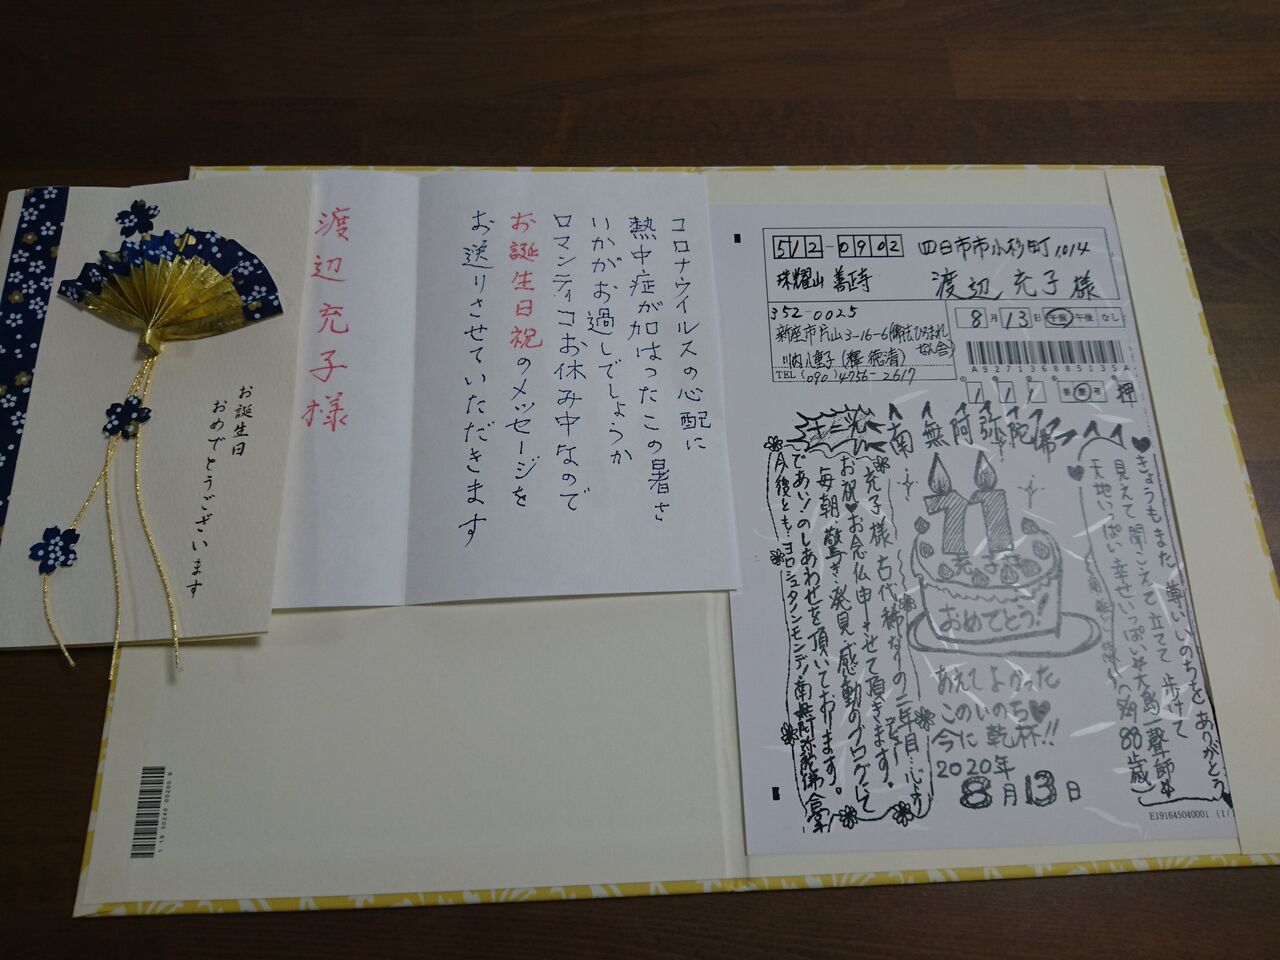 お誕生日
おめでとうございます
渡辺充子様
コロナウイルスの心配に
熱中症が加はったこの暑さ
いかがお過しでしょうか
ロマンティコお休み中なので
お誕生日祝のメッセージを
お送りさせていただきます
512-0902 四日市市小杉町1,014
珠耀山 善正寺 渡辺 充子 様
8月13日 午前 午後 なし
352-0025
新座市片山3-16-6
TEL (090)4756-2617
A927136885135A
1 1 1 押
南無阿弥陀佛
♥きょうもまた 尊いいのちを ありがとう
見えて 聞こえて 立てて 歩けて
♥天地いっぱい 幸せいっぱい
88歳
77
充子様
おめでとう!
あえてよかった
このいのち♥
今に乾杯!!
2020年
8月13日
充子様 古代稀なりの二年目…心より
お祝♥お念仏申させて頂きます。
毎朝、驚き・発見・感動のブログにて
であい!のしあわせを頂いております。
今後とも…ヨロシュタノンモンデ!南無阿弥陀佛 合掌
E191645040001 (1/
1 19 30240 00200 6